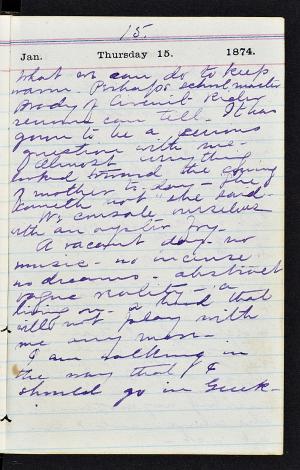 15.
Jan. Thursday 15. 1874.
What we can do to keep
warm. Perhaps school master
Brody of Circuit Rider
renown can tell. It has
grown to be a serious
question with me.
Almost
looked toward the coming
of mother to day – She
cometh not "she said."
We console ourselves
with an oyster fry.
A vacant day – no
music – no incense
no dreams – abstract
vague reality – a
living on – a mood that
will not play with
me any more.
I am walking in
the way that I
should go in Greek.